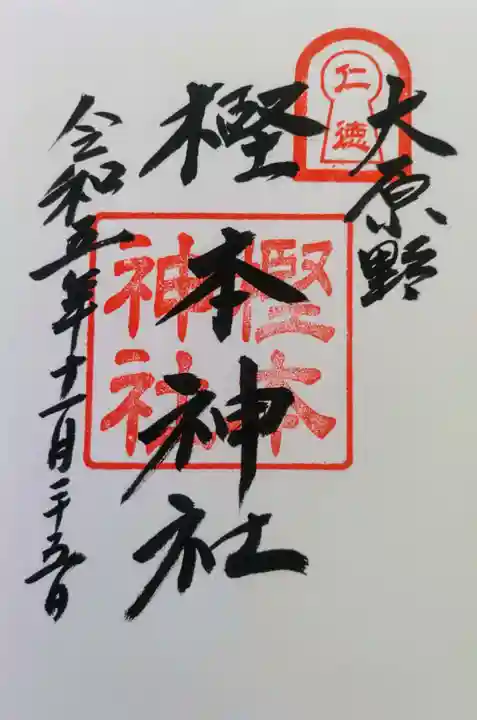 大原野
仁徳
樫本神社
樫本
神社
令和五年十一月二十五日